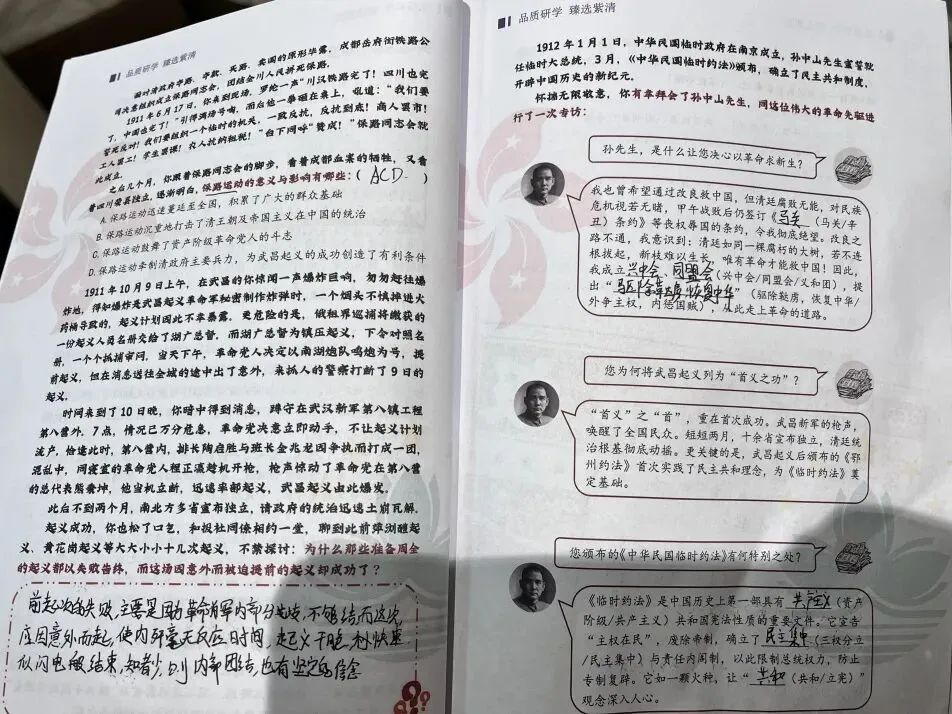 品质研学 臻选紫清
面对清政府夺路、夺款、卖路、卖国的原形毕露,成都岳府街铁路公
司决意组织成立保路同志会,团结全川人民拼死保路。
1911年6月17日,你来到现场,罗纶一声"川汉铁路完了!四川也完
了,中国也完了!"引得满场号啕,而后他一拳砸在桌上,吼道:"我们要
誓死反对!我们要组织一个临时的机关,一致反抗,反抗到底!商人罢市!
工人罢工!学生罢课!农人抗纳租税!"台下同呼"赞成!"保路同志会就
此成立。
之后几个月,你跟着保路同志会的脚步,看着成都血案的牺牲,又看
着四川荣县独立,逐渐明白,保路运动的意义与影响有哪些:( ACD )
A.保路运动迅速蔓延至全国,积累了广大的群众基础
B.保路运动沉重地打击了清王朝及帝国主义在中国的统治
C.保路运动鼓舞了资产阶级革命党人的斗志
D.保路运动牵制清政府主要兵力,为武昌起义的成功创造了有利条件
1911年10月9日上午,在武昌的你惊闻一声爆炸巨响,匆匆赶往爆
炸地,得知爆炸是武昌起义革命军秘密制作炸弹时,一个烟头不慎掉进火
药桶导致的,起义计划因此不幸暴露。更危险的是,俄租界巡捕将缴获的
一份起义人员名册交给了湖广总督,而湖广总督为镇压起义,下令对照名
册,一个个抓捕审问。当天下午,革命党人决定以南湖炮队鸣炮为号,提
前起义,但在消息送往全城的途中出了意外,来抓人的警察打断了9日的
起义。
时间来到了10日晚,你暗中得到消息,蹲守在武汉新军第八镇工程
第八营外。7点,情况已万分危急,革命党决意立即动手,不让起义计划
流产。恰逢此时,第八营内,排长陶启胜与班长金兆龙因争执而打成一团,
混乱中,同寝室的革命党人程正瀛趁机开枪,枪声惊动了革命党在第八营
的总代表熊秉坤,他当机立断,迅速率部起义,武昌起义由此爆发。
此后不到两个月,南北方多省宣布独立,清政府的统治迅速土崩瓦解。
起义成功,你也松了口气,和报社同僚相约一堂,聊到此前萍浏醴起
义、黄花岗起义等大大小小十几次起义,不禁探讨:为什么那些准备周全
的起义都以失败告终,而这场因意外而被迫提前的起义却成功了?
前起次的失败,主要是因革命军内部分歧,不够团结而这次
应因意外而起,使内奸毫无反应时间,起义干脆利快
似闪电 结束,知者少 内部团结,也有坚定的信念
品质研学 臻选紫清
1912年1月1日,中华民国临时政府在南京成立,孙中山先生宣誓就
任临时大总统,3月,《中华民国临时约法》颁布,确立了民主共和制度,
开辟中国历史的新纪元。
怀揣无限敬意,你有幸拜会了孙中山先生,同这位伟大的革命先驱进
行了一次专访:
孙先生,是什么让您决心以革命求新生?
我也曾希望通过改良救中国,但清廷腐败无能,对民族
危机视若无睹,甲午战败后仍签订《马关(马关/辛
丑)条约》等丧权辱国的条约,令我彻底绝望。改良之
路不通,我意识到:清廷如同一棵腐朽的大树,若不连
根拔起,新枝难以生长,唯有革命才能救中国!因此,
我成立兴中会、同盟会(兴中会/同盟会/义和团),提
出"驱除鞑虏,恢复中华"(驱除鞑虏,恢复中华/
外争主权,内惩国贼),从此走上革命的道路。
您为何将武昌起义列为"首义之功"?
"首义"之"首",重在首次成功。武昌新军的枪声,
唤醒了全国民众。短短两月,十余省宣布独立,清廷统
治根基彻底动摇。更关键的是,武昌起义后颁布的《鄂
州约法》首次实践了民主共和理念,为《临时约法》奠
定基础。
您颁布的《中华民国临时约法》有何特别之处?
《临时约法》是中国历史上第一部具有共产主义(资产
阶级/共产主义)共和国宪法性质的重要文件。它宣告
"主权在民",废除帝制,确立了民主集中(三权分立
/民主集中)与责任内阁制,以此限制总统权力,防止
专制复辟。它如一颗火种,让"共和(共和/立宪)"
观念深入人心。